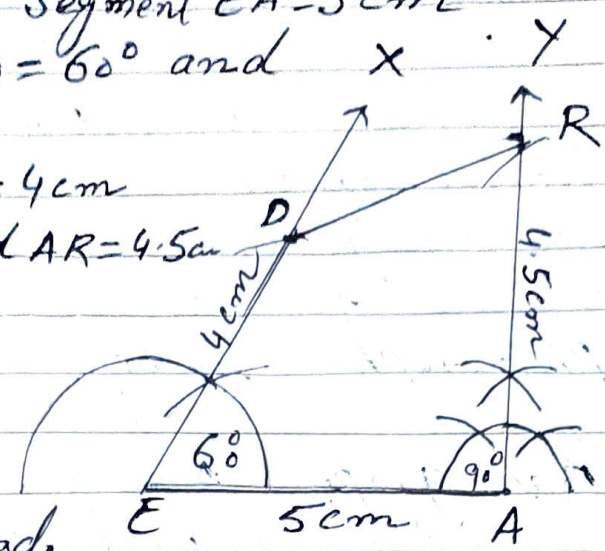 Segment EA=5cm
= 60° and
X
Y
R
4cm
D
AR=4.5cm
4cm
4.5cm
60°
90°
E
5cm
A